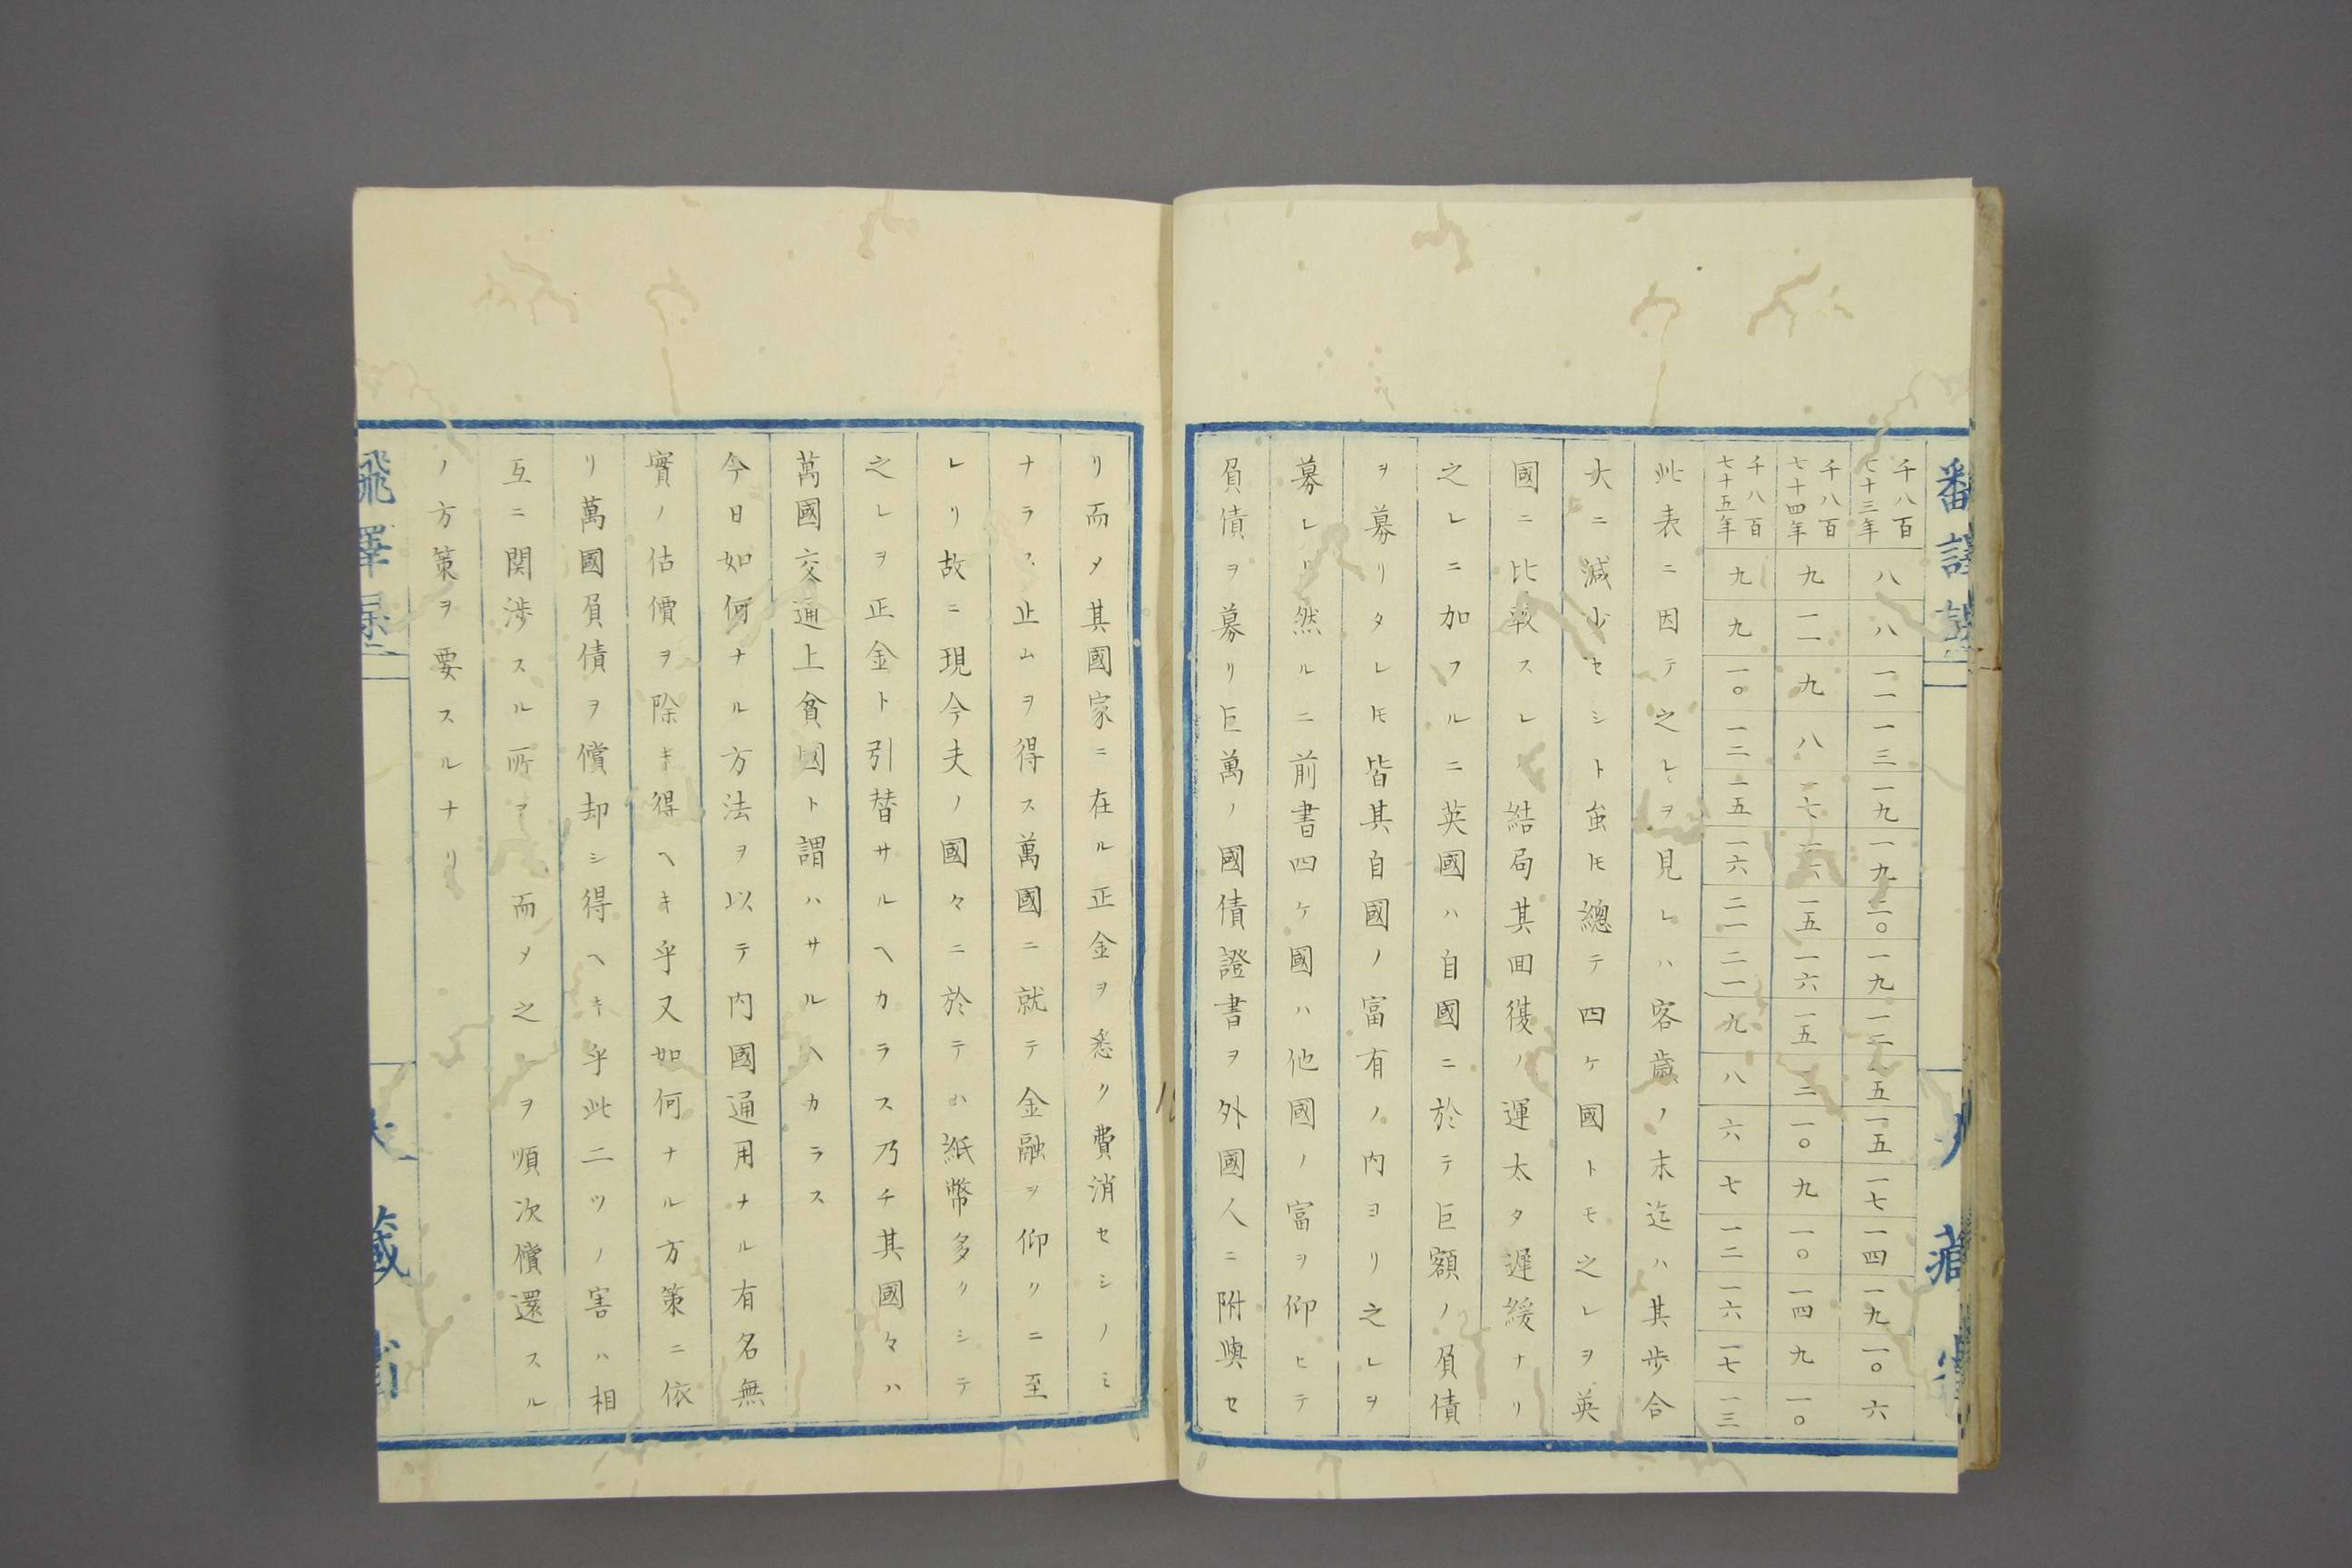 千八百七十三年 八 八 一一 一三 一九 一九 二〇 一九 一二 五 一五 一七 一四 一九 一〇 六
千八百七十四年 九 一一 九 八 一七 一六 一五 一六 一五 一二 一〇 九 一〇 一四 九 一〇
千八百七十五年 九 九 一〇 一二 一五 一六 二一 二一 九 八 六 七 一二 一六 一七 一三
此表ニ因テ之レヲ見レハ客歳ノ末迄ハ其歩合
大ニ減少セシト虽𪜈總テ四ケ國トモ之レヲ英
國ニ比較スレハ結局其囬復ノ運太タ遲緩ナリ
之レニ加フルニ英國ハ自國ニ於テ巨額ノ負債
ヲ募リタレ𪜈皆其自國ノ富有ノ内ヨリ之レヲ
募レリ然ルニ前書四ケ國ハ他國ノ富ヲ仰ヒテ
負債ヲ募リ巨萬ノ國債證書ヲ外國人ニ附與セ
リ而メ其國家ニ在ル正金ヲ悉ク費消セシノミ
ナラス止ムヲ得ス萬國ニ就テ金融ヲ仰クニ至
レリ故ニ現今夫ノ國々ニ於テハ紙幣多クシテ
之レヲ正金ト引替サルヘカラス乃チ其國々ハ
萬國交通上貧國ト謂ハサルヘカラス
今日如何ナル方法ヲ以テ内國通用ナル有名無
實ノ估價ヲ除キ得ヘキ乎又如何ナル方策ニ依
リ萬國負債ヲ償却シ得ヘキ乎此二ツノ害ハ相
互ニ関渉スル所ヲ而メ之レヲ順次償還スル
ノ方策ヲ要スルナリ